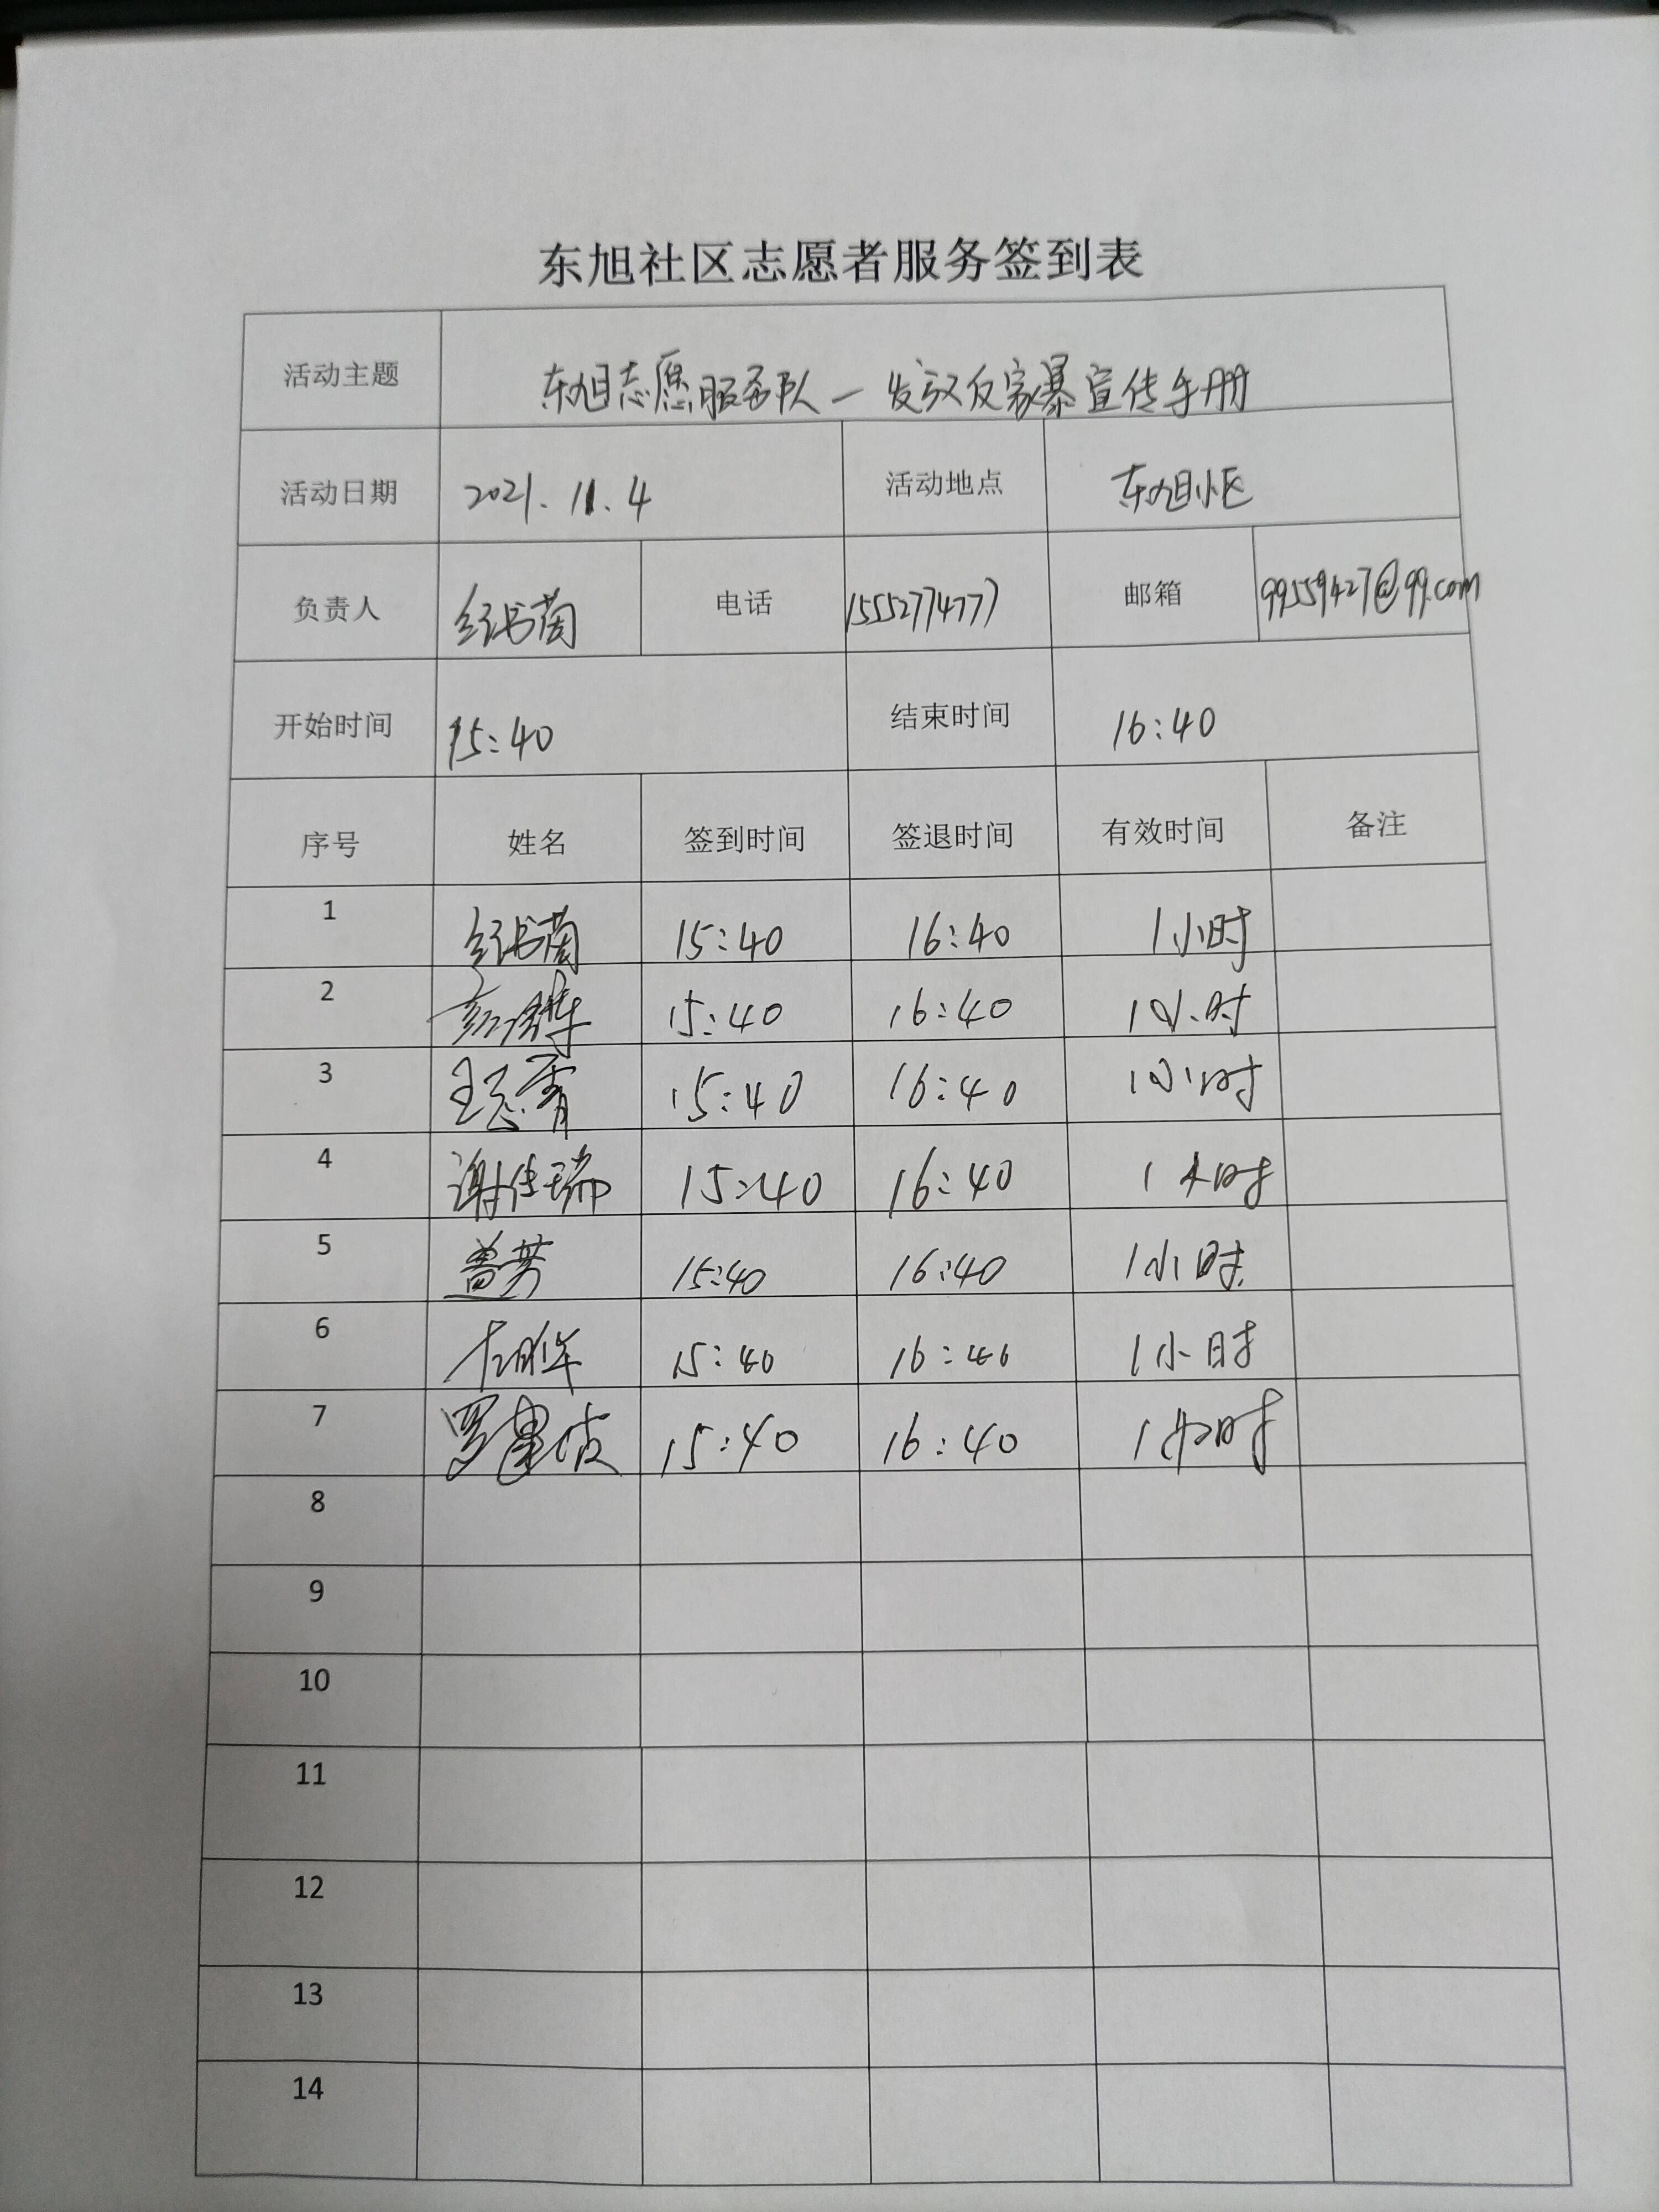 东旭社区志愿者服务签到表
活动主题 东旭志愿服务队—发放反家暴宣传手册
活动日期 2021.11.4 活动地点 东旭小区
负责人 电话 15552774777 邮箱 99559427@qq.com
开始时间 15:40 结束时间 16:40
序号 姓名 签到时间 签退时间 有效时间 备注
1 15:40 16:40 1小时
2 15:40 16:40 1小时
3 15:40 16:40 1小时
4 谢佳瑞 15:40 16:40 1小时
5 15:40 16:40 1小时
6 15:40 16:40 1小时
7 罗建波 15:40 16:40 1小时
8
9
10
11
12
13
14